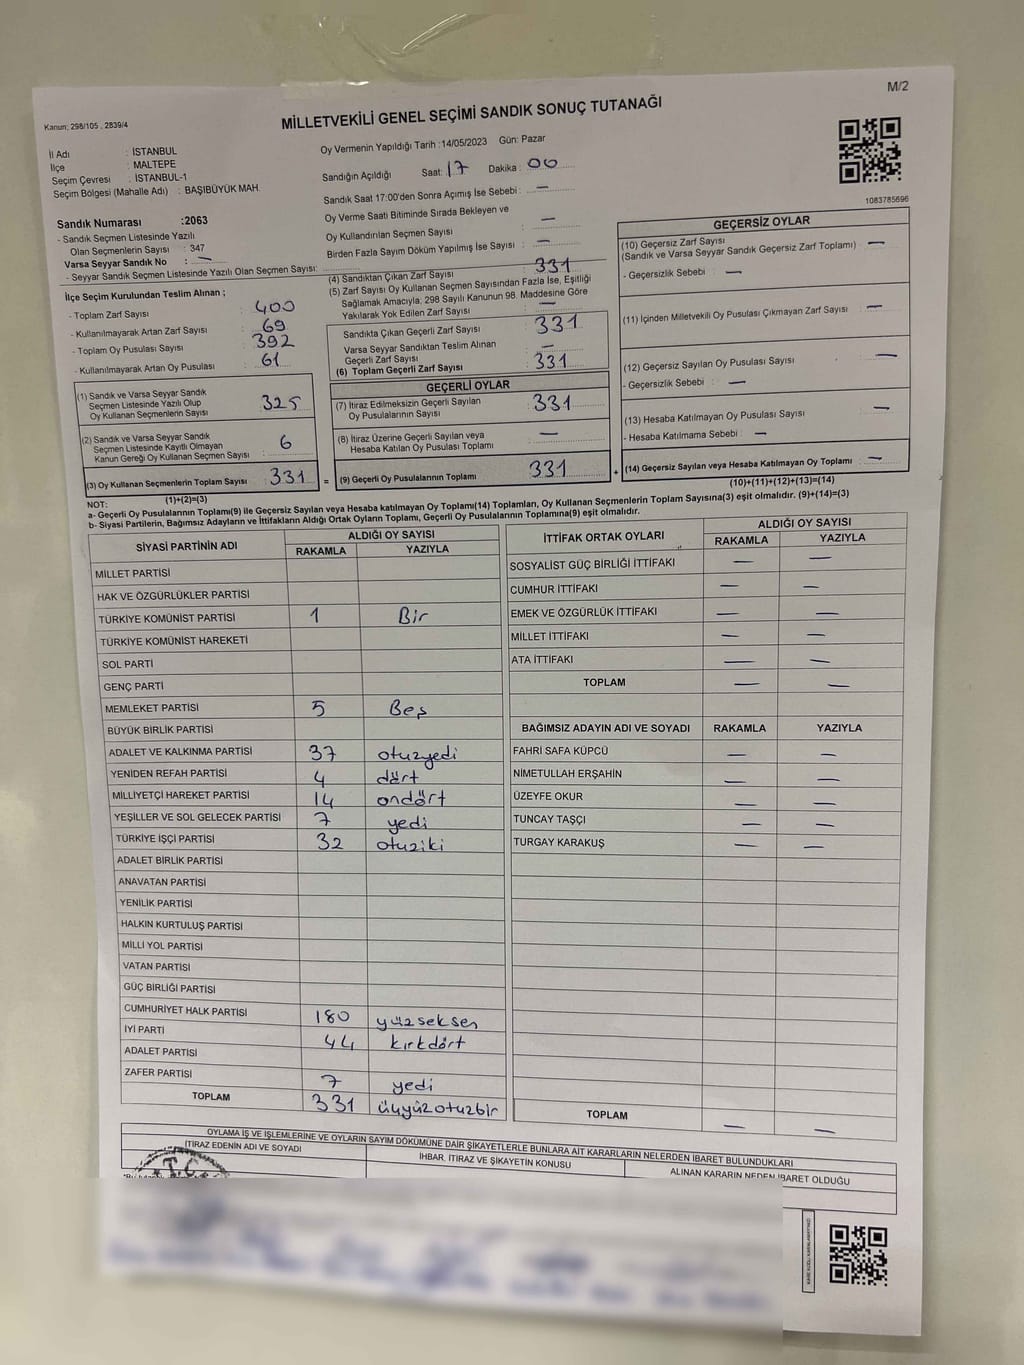 M/2
Kanun: 298/105 , 2839/4
MİLLETVEKİLİ GENEL SEÇİMİ SANDIK SONUÇ TUTANAĞI
İl Adı : İSTANBUL
İlçe : MALTEPE
Seçim Çevresi : İSTANBUL-1
Seçim Bölgesi (Mahalle Adı) : BAŞIBÜYÜK MAH.
Sandık Numarası :2063
- Sandık Seçmen Listesinde Yazılı
Olan Seçmenlerin Sayısı : 347
Varsa Seyyar Sandık No : —
- Seyyar Sandık Seçmen Listesinde Yazılı Olan Seçmen Sayısı:
Oy Vermenin Yapıldığı Tarih :14/05/2023 Gün: Pazar
Sandığın Açıldığı Saat: 17 Dakika : 00
Sandık Saat 17:00'den Sonra Açımış İse Sebebi : —
Oy Verme Saati Bitiminde Sırada Bekleyen ve
Oy Kullandırılan Seçmen Sayısı : —
Birden Fazla Sayım Döküm Yapılmış İse Sayısı : —
1083785696
İlçe Seçim Kurulundan Teslim Alınan ;
- Toplam Zarf Sayısı : 400
- Kullanılmayarak Artan Zarf Sayısı : 69
- Toplam Oy Pusulası Sayısı : 392
- Kullanılmayarak Artan Oy Pusulası : 61
(1) Sandık ve Varsa Seyyar Sandık
Seçmen Listesinde Yazılı Olup
Oy Kullanan Seçmenlerin Sayısı : 325
(2) Sandık ve Varsa Seyyar Sandık
Seçmen Listesinde Kayıtlı Olmayan
Kanun Gereği Oy Kullanan Seçmen Sayısı : 6
(3) Oy Kullanan Seçmenlerin Toplam Sayısı : 331
(1)+(2)=(3)
(4) Sandıktan Çıkan Zarf Sayısı : 331
(5) Zarf Sayısı Oy Kullanan Seçmen Sayısından Fazla İse, Eşitliği
Sağlamak Amacıyla; 298 Sayılı Kanunun 98. Maddesine Göre
Yakılarak Yok Edilen Zarf Sayısı : —
Sandıkta Çıkan Geçerli Zarf Sayısı : 331
Varsa Seyyar Sandıktan Teslim Alınan
Geçerli Zarf Sayısı : —
(6) Toplam Geçerli Zarf Sayısı : 331
GEÇERLİ OYLAR
(7) İtiraz Edilmeksizin Geçerli Sayılan
Oy Pusulalarının Sayısı : 331
(8) İtiraz Üzerine Geçerli Sayılan veya
Hesaba Katılan Oy Pusulası Toplamı : —
= (9) Geçerli Oy Pusulalarının Toplamı : 331
GEÇERSİZ OYLAR
(10) Geçersiz Zarf Sayısı : —
(Sandık ve Varsa Seyyar Sandık Geçersiz Zarf Toplamı)
- Geçersizlik Sebebi : —
(11) İçinden Milletvekili Oy Pusulası Çıkmayan Zarf Sayısı : —
(12) Geçersiz Sayılan Oy Pusulası Sayısı : —
- Geçersizlik Sebebi : —
(13) Hesaba Katılmayan Oy Pusulası Sayısı : —
- Hesaba Katılmama Sebebi : —
+ (14) Geçersiz Sayılan veya Hesaba Katılmayan Oy Toplamı : —
(10)+(11)+(12)+(13)=(14)
NOT:
a- Geçerli Oy Pusulalarının Toplamı(9) ile Geçersiz Sayılan veya Hesaba katılmayan Oy Toplamı(14) Toplamları, Oy Kullanan Seçmenlerin Toplam Sayısına(3) eşit olmalıdır. (9)+(14)=(3)
b- Siyasi Partilerin, Bağımsız Adayların ve İttifakların Aldığı Ortak Oyların Toplamı, Geçerli Oy Pusulalarının Toplamına(9) eşit olmalıdır.
SİYASİ PARTİNİN ADI ALDIĞI OY SAYISI
RAKAMLA YAZIYLA
MİLLET PARTİSİ
HAK VE ÖZGÜRLÜKLER PARTİSİ
TÜRKİYE KOMÜNİST PARTİSİ 1 Bir
TÜRKİYE KOMÜNİST HAREKETİ
SOL PARTİ
GENÇ PARTİ
MEMLEKET PARTİSİ 5 Beş
BÜYÜK BİRLİK PARTİSİ
ADALET VE KALKINMA PARTİSİ 37 otuzyedi
YENİDEN REFAH PARTİSİ 4 dört
MİLLİYETÇİ HAREKET PARTİSİ 14 ondört
YEŞİLLER VE SOL GELECEK PARTİSİ 7 yedi
TÜRKİYE İŞÇİ PARTİSİ 32 otuziki
ADALET BİRLİK PARTİSİ
ANAVATAN PARTİSİ
YENİLİK PARTİSİ
HALKIN KURTULUŞ PARTİSİ
MİLLİ YOL PARTİSİ
VATAN PARTİSİ
GÜÇ BİRLİĞİ PARTİSİ
CUMHURİYET HALK PARTİSİ 180 yüzseksen
İYİ PARTİ 44 kırkdört
ADALET PARTİSİ
ZAFER PARTİSİ 7 yedi
TOPLAM 331 üçyüzotuzbir
İTTİFAK ORTAK OYLARI ALDIĞI OY SAYISI
RAKAMLA YAZIYLA
SOSYALİST GÜÇ BİRLİĞİ İTTİFAKI — —
CUMHUR İTTİFAKI — —
EMEK VE ÖZGÜRLÜK İTTİFAKI — —
MİLLET İTTİFAKI — —
ATA İTTİFAKI — —
TOPLAM — —
BAĞIMSIZ ADAYIN ADI VE SOYADI RAKAMLA YAZIYLA
FAHRİ SAFA KÜPCÜ — —
NİMETULLAH ERŞAHİN — —
ÜZEYFE OKUR — —
TUNCAY TAŞÇI — —
TURGAY KARAKUŞ — —
TOPLAM — —
OYLAMA İŞ VE İŞLEMLERİNE VE OYLARIN SAYIM DÖKÜMÜNE DAİR ŞİKAYETLERLE BUNLARA AİT KARARLARIN NELERDEN İBARET BULUNDUKLARI
İTİRAZ EDENİN ADI VE SOYADI İHBAR, İTİRAZ VE ŞİKAYETİN KONUSU ALINAN KARARIN NEDEN İBARET OLDUĞU
T.C.